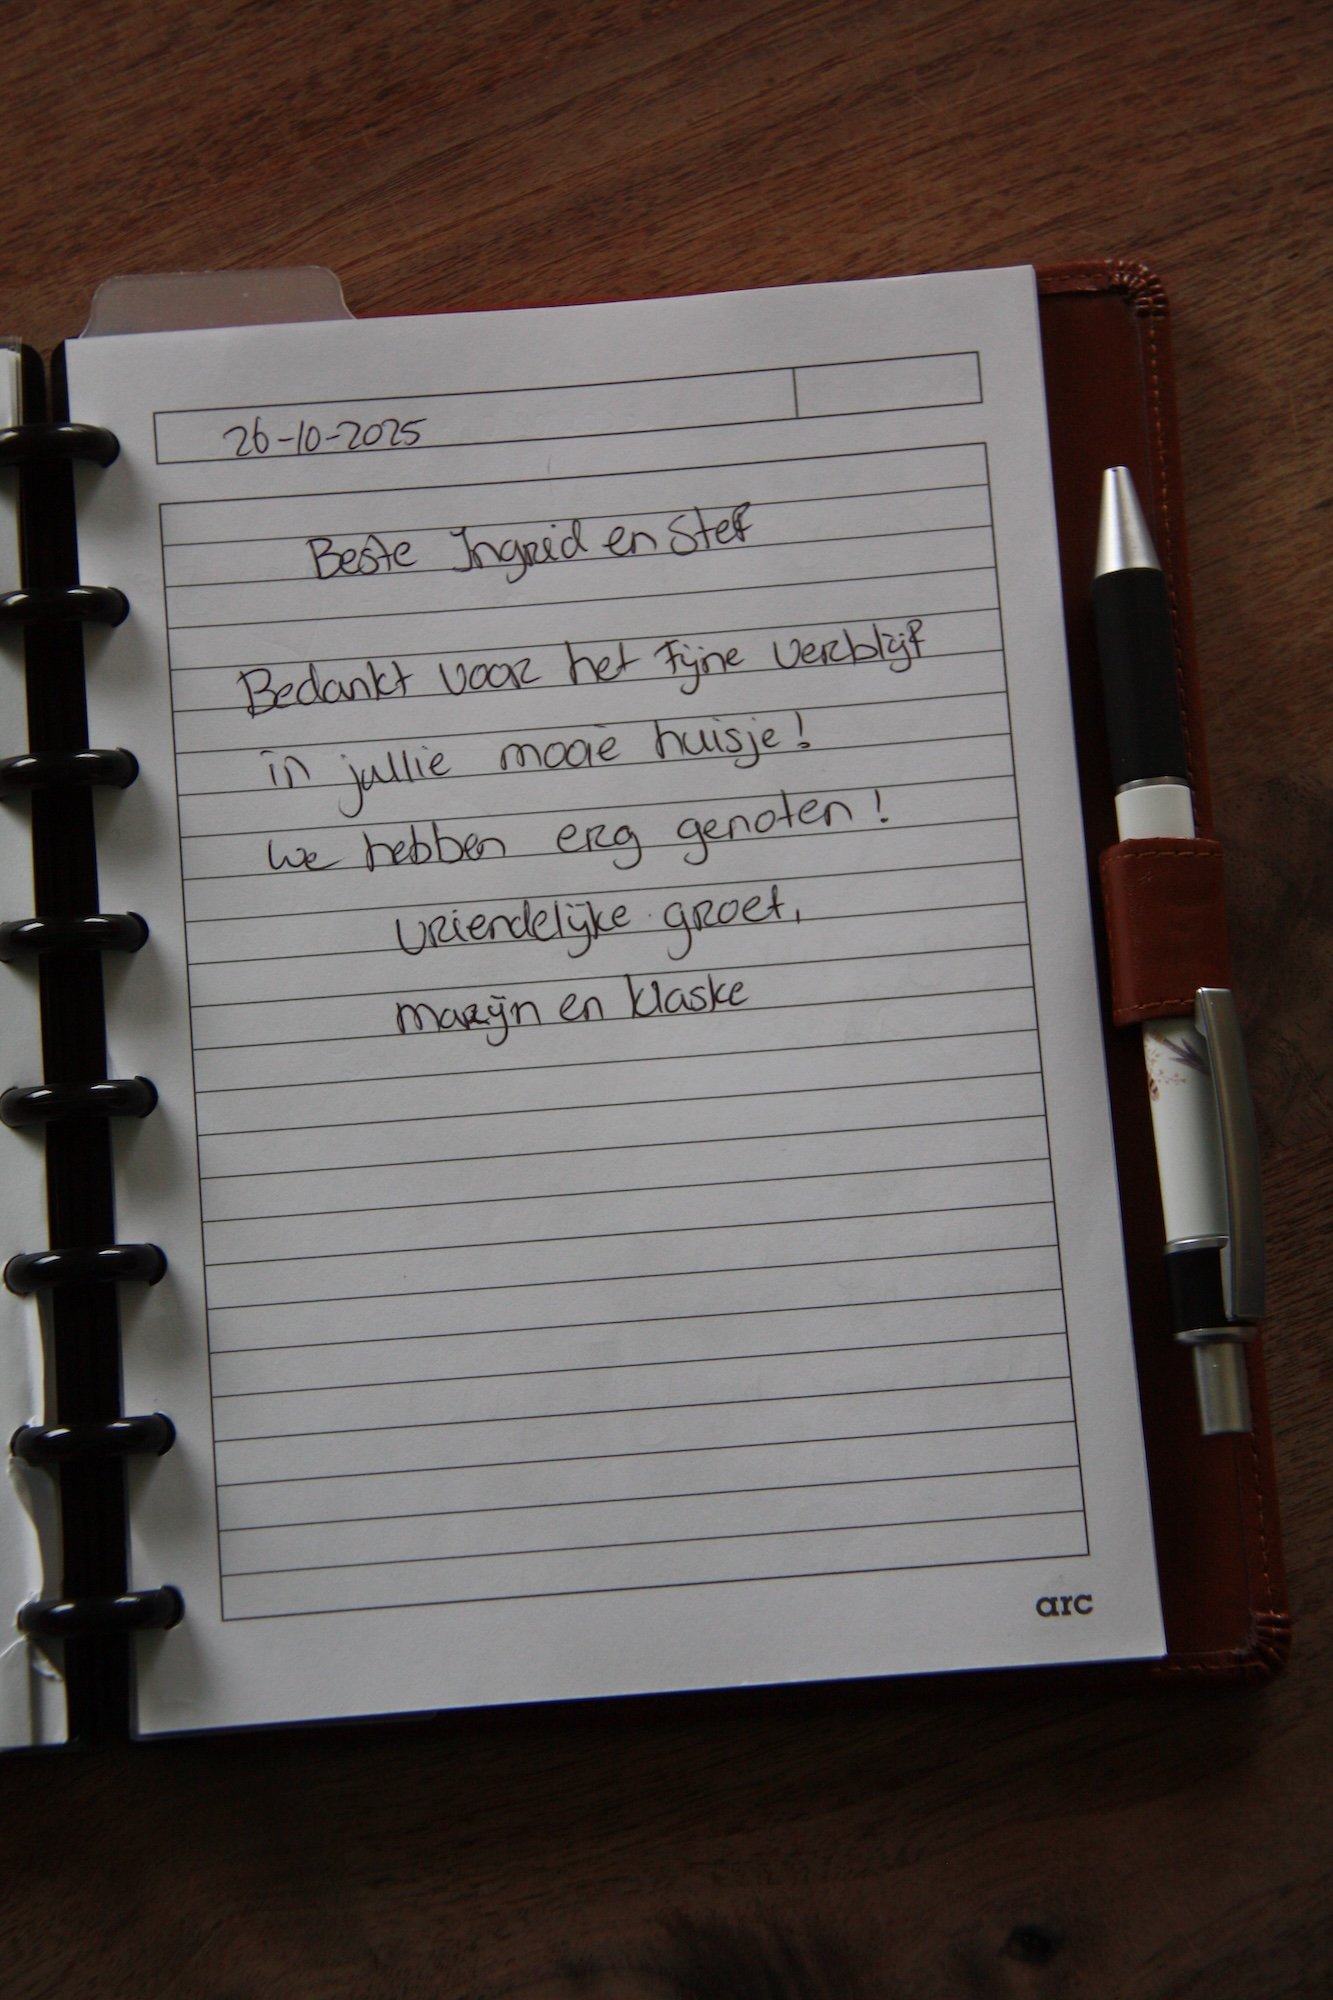 26-10-2025
Beste Ingrid en Stef
Bedankt voor het fijne verblijf
in jullie mooie huisje!
we hebben erg genoten!
vriendelijke groet,
marijn en klaske
arc